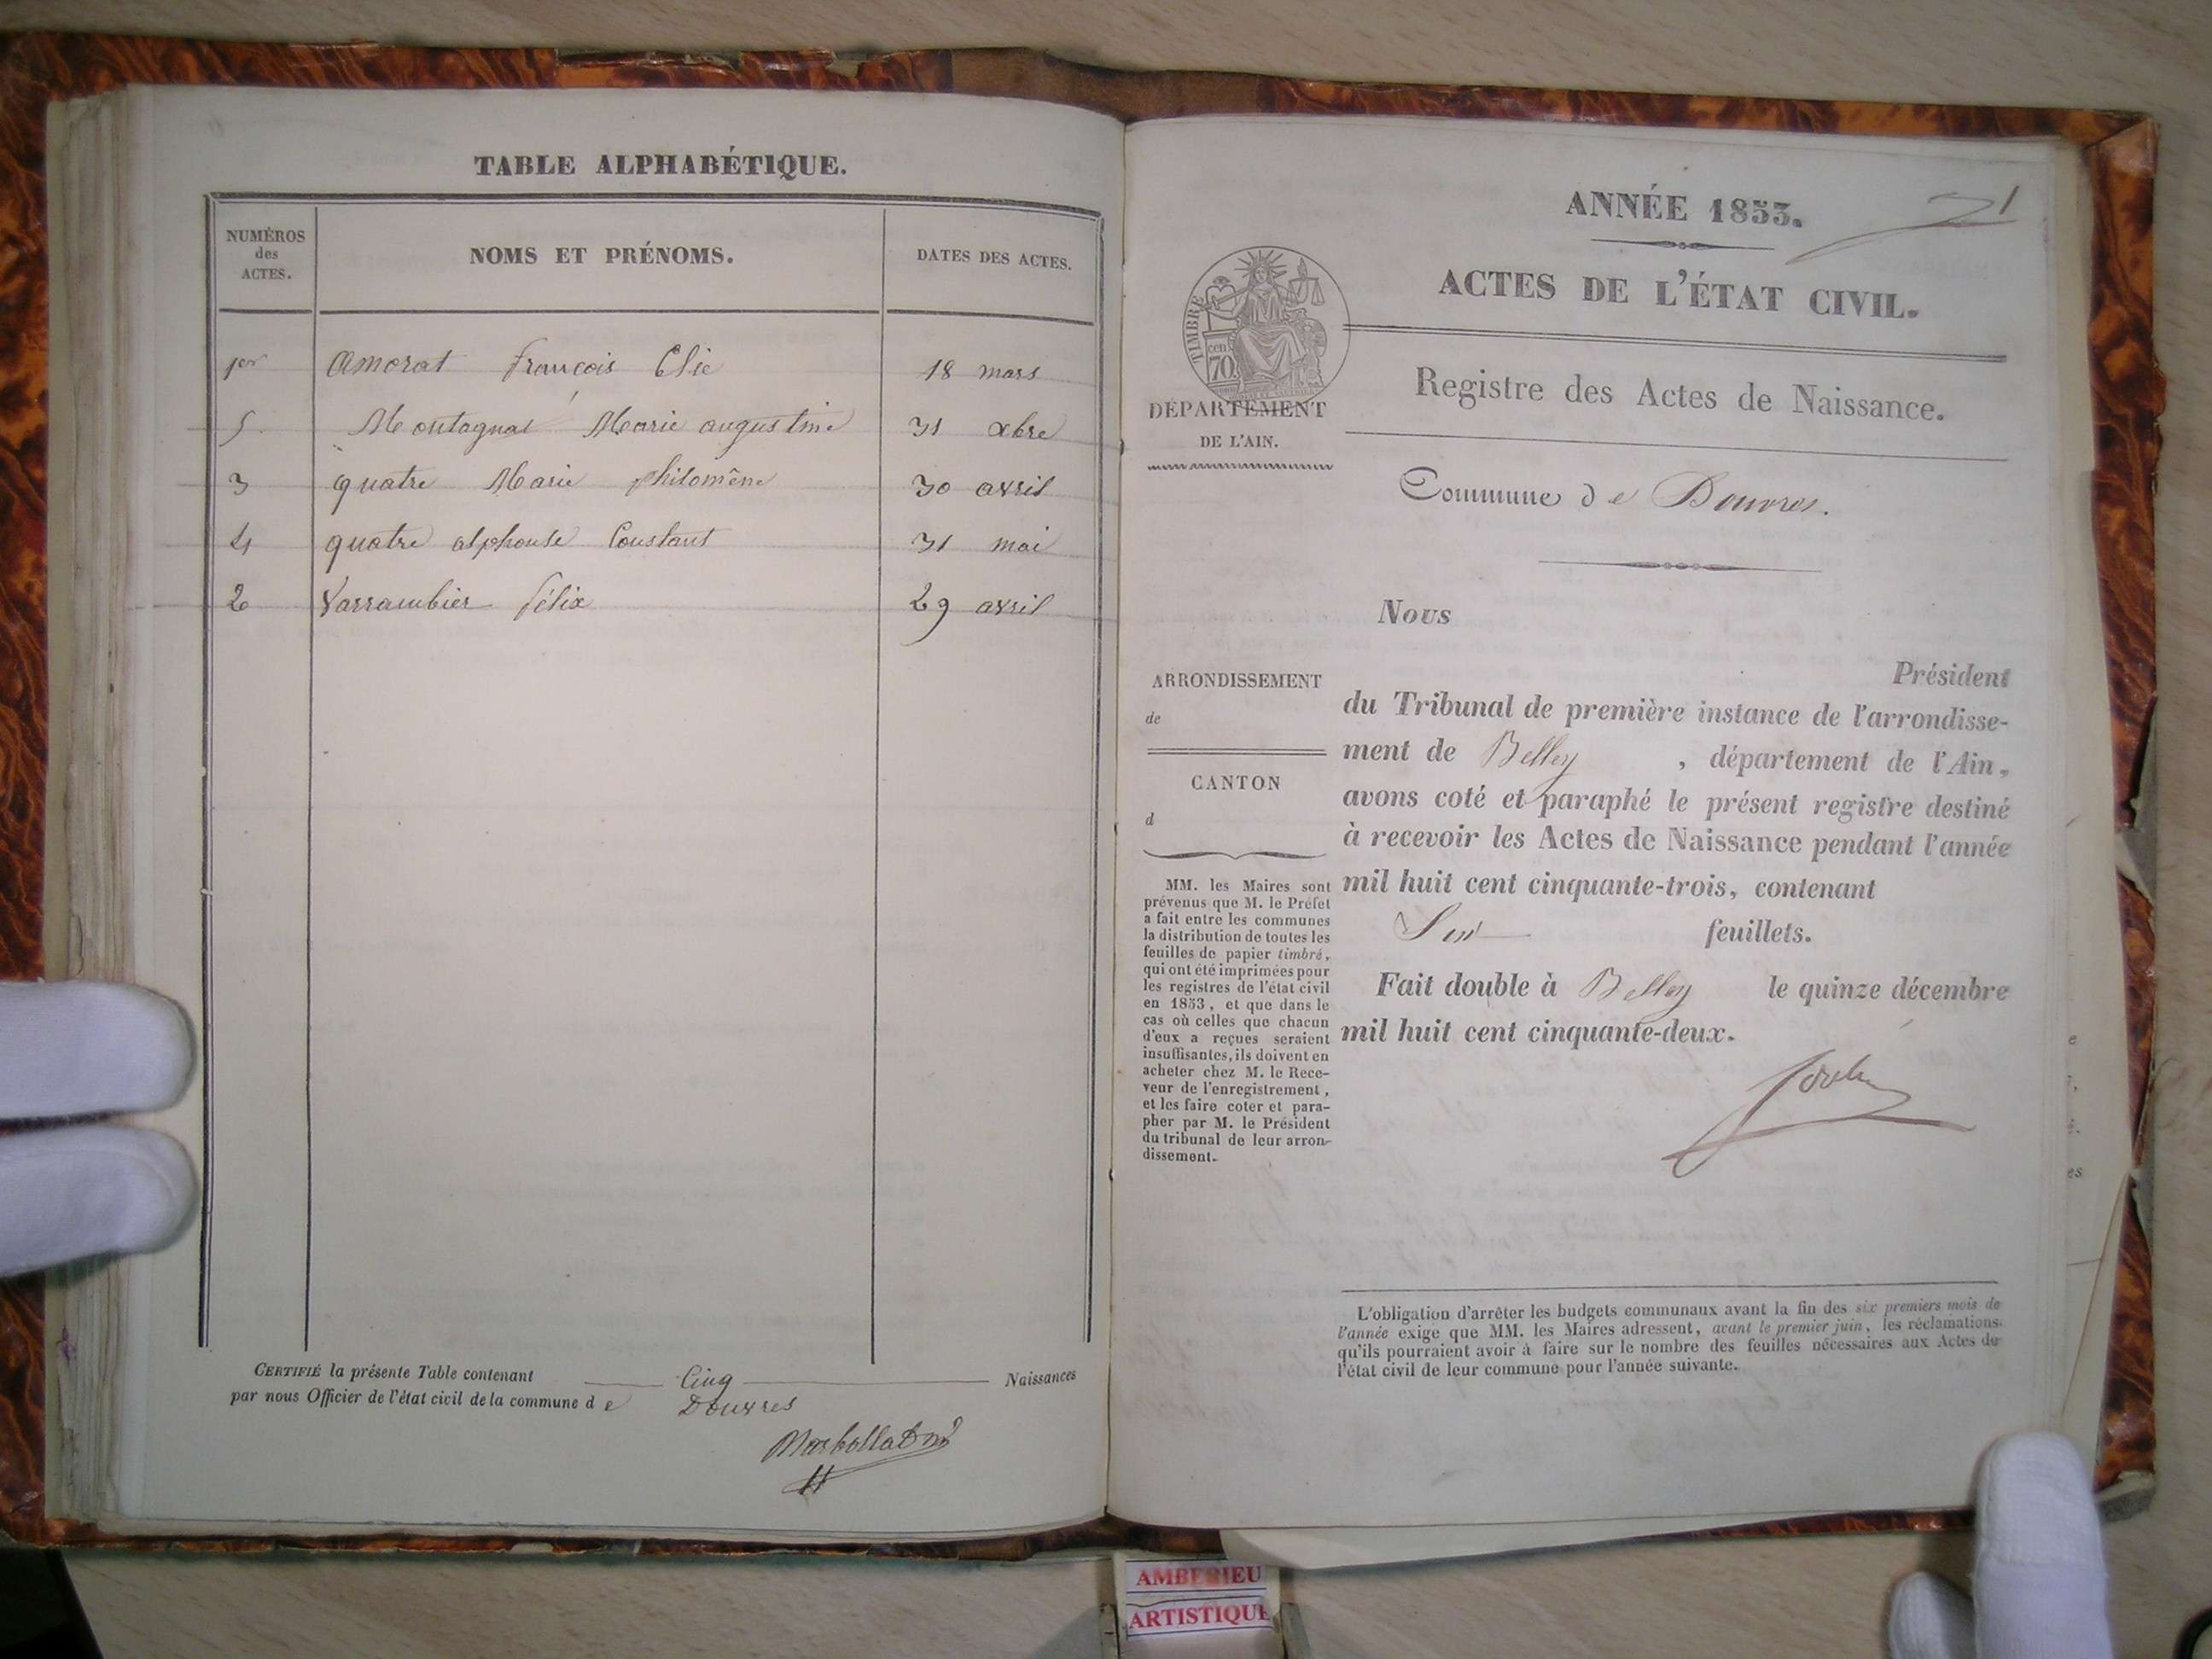 TABLE ALPHABÉTIQUE.
NUMÉROS des ACTES. NOMS ET PRÉNOMS. DATES DES ACTES.
1er Amorat françois Elie 18 mars
5 Montagnat Marie augustine 31 xbre
3 quatre Marie philomène 30 avril
4 quatre alphonse Constant 31 mai
2 Varrambier félix 29 avril
CERTIFIÉ la présente Table contenant Cinq Naissances
par nous Officier de l'état civil de la commune d e Douvres
ANNÉE 1853.
ACTES DE L'ÉTAT CIVIL.
TIMBRE
70 cent
DÉPARTEMENT
DE L'AIN.
Registre des Actes de Naissance.
Commune d e Douvres.
Nous
Président
du Tribunal de première instance de l'arrondisse-
ment de Belley , département de l'Ain,
avons coté et paraphé le présent registre destiné
à recevoir les Actes de Naissance pendant l'année
mil huit cent cinquante-trois, contenant
Six feuillets.
Fait double à Belley le quinze décembre
mil huit cent cinquante-deux.
ARRONDISSEMENT
de
CANTON
d
MM. les Maires sont
prévenus que M. le Préfet
a fait entre les communes
la distribution de toutes les
feuilles de papier timbré,
qui ont été imprimées pour
les registres de l'état civil
en 1853, et que dans le
cas où celles que chacun
d'eux a reçues seraient
insuffisantes, ils doivent en
acheter chez M. le Rece-
veur de l'enregistrement,
et les faire coter et para-
pher par M. le Président
du tribunal de leur arron-
dissement.
L'obligation d'arrêter les budgets communaux avant la fin des six premiers mois de
l'année exige que MM. les Maires adressent, avant le premier juin, les réclamations
qu'ils pourraient avoir à faire sur le nombre des feuilles nécessaires aux Actes de
l'état civil de leur commune pour l'année suivante.
AMBERIEU
ARTISTIQUE